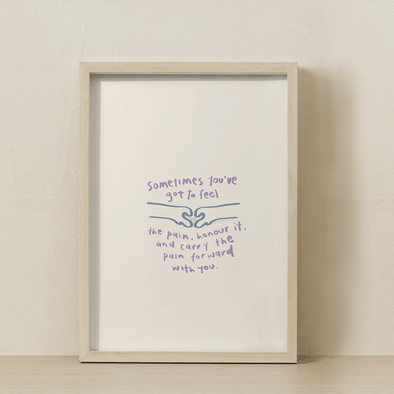 sometimes you've
got to feel
the pain, honour it,
and carry the
pain forward
with you.